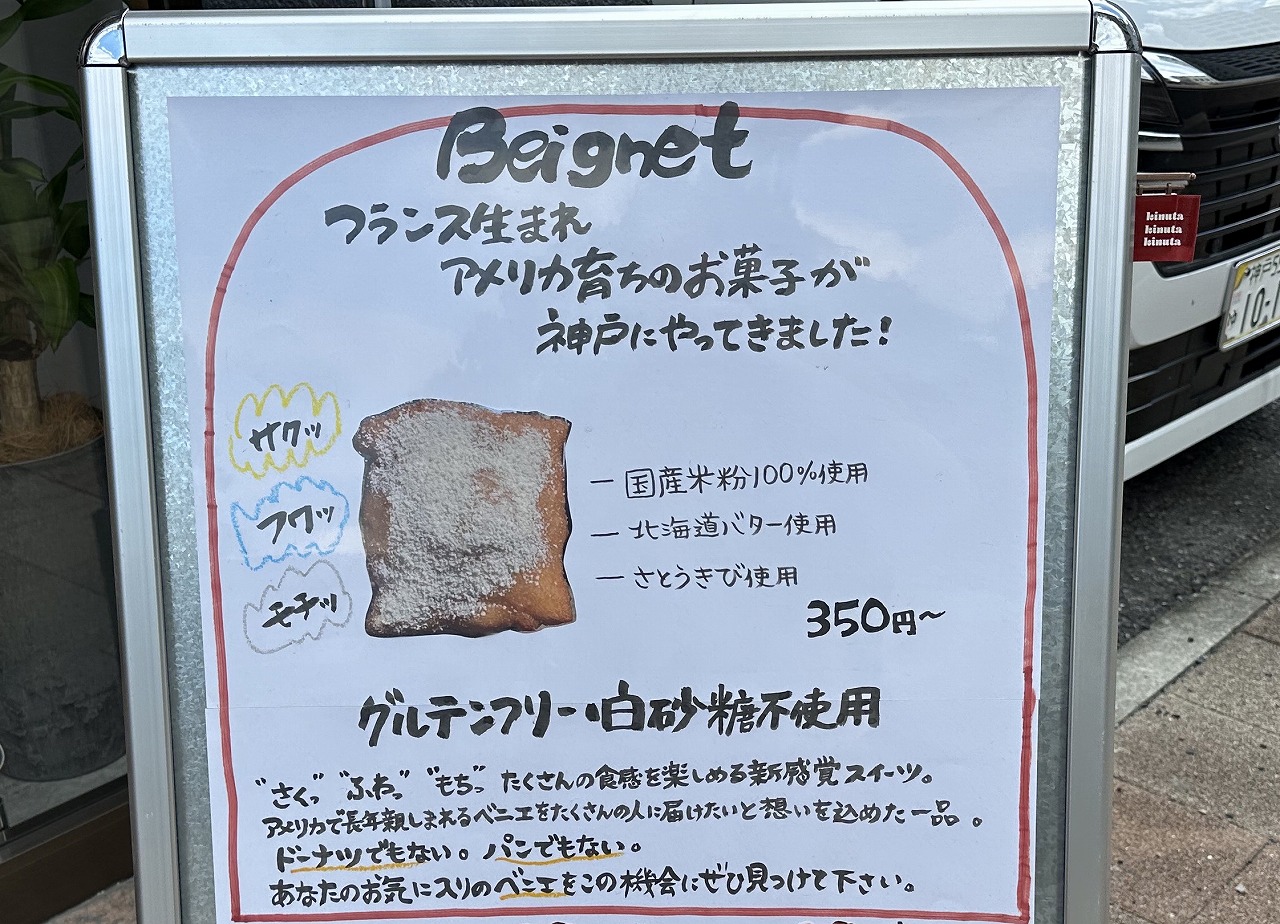 Beignet
フランス生まれ
アメリカ育ちのお菓子が
神戸にやってきました!
サクッ
フワッ
モチッ
— 国産米粉100%使用
— 北海道バター使用
— さとうきび使用
350円~
グルテンフリー・白砂糖不使用
"さくっ" "ふわっ" "もちっ" たくさんの食感を楽しめる新感覚スイーツ。
アメリカで長年親しまれるベニエをたくさんの人に届けたいと想いを込めた一品。
ドーナツでもない。パンでもない。
あなたのお気に入りのベニエをこの機会にぜひ見つけて下さい。
kinuta
kinuta
kinuta
神戸
10-